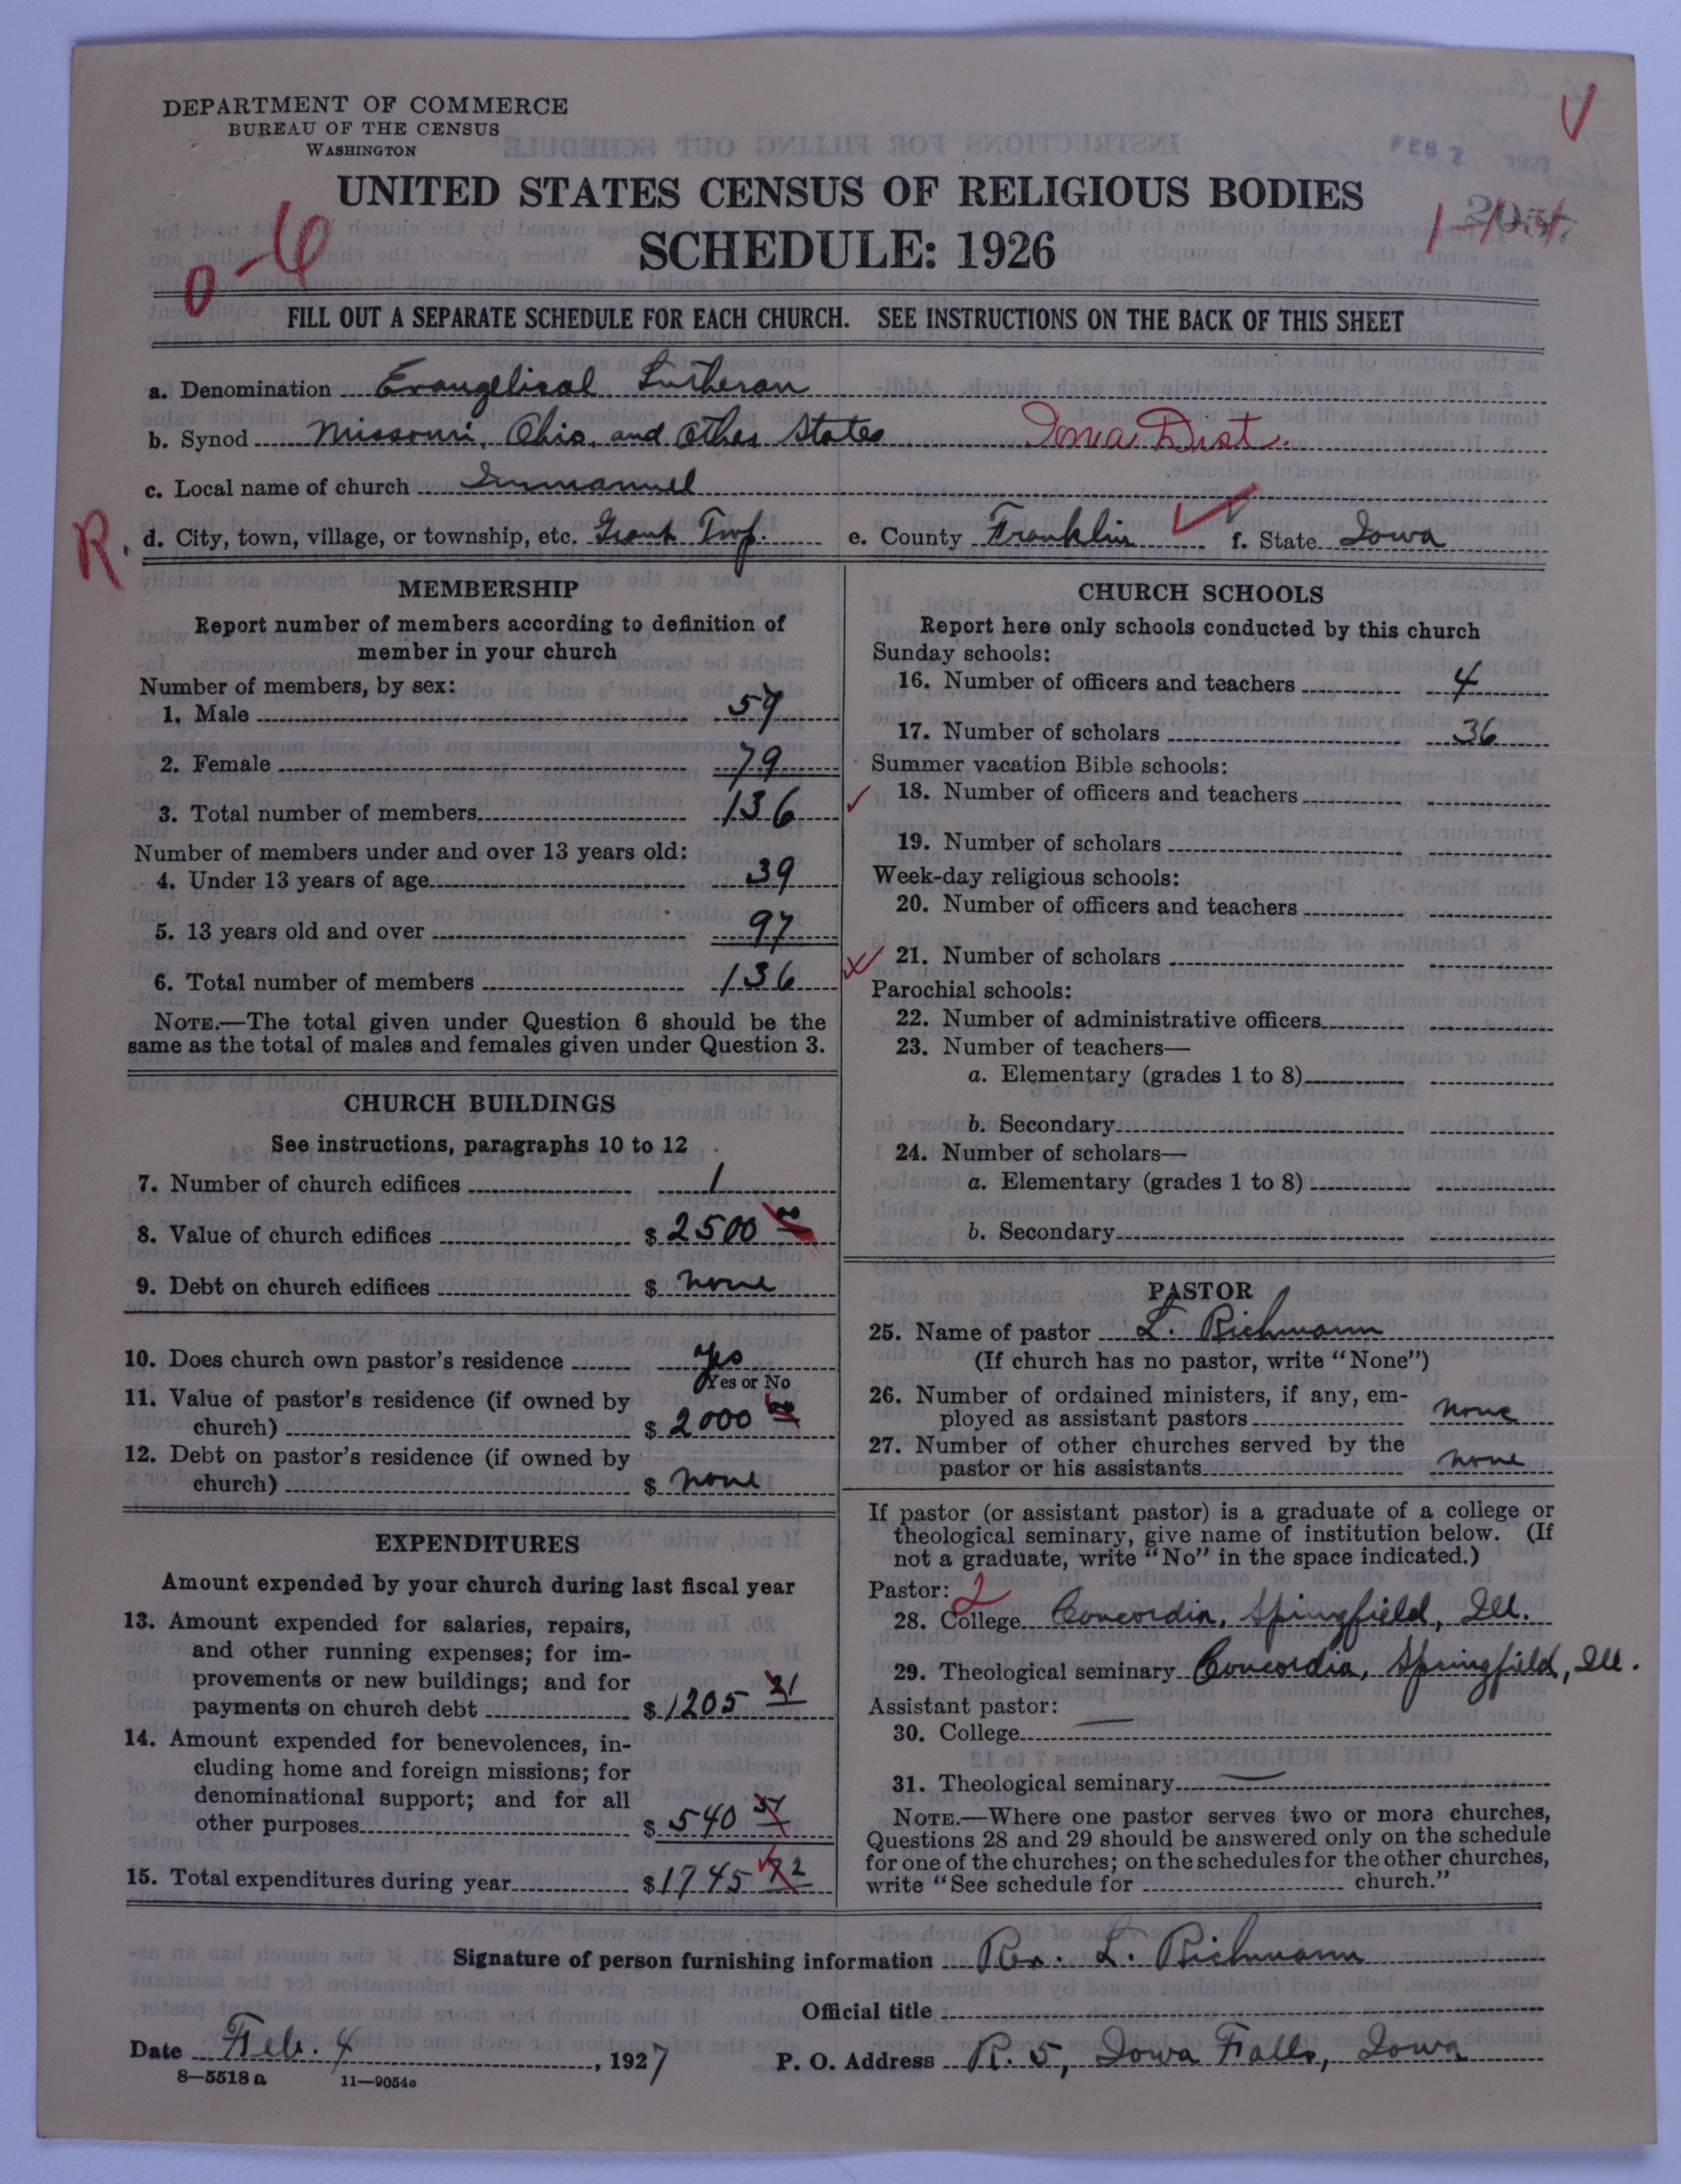 DEPARTMENT OF COMMERCE
BUREAU OF THE CENSUS
WASHINGTON
FEB 7 1927
UNITED STATES CENSUS OF RELIGIOUS BODIES
SCHEDULE: 1926
0-6
2057
FILL OUT A SEPARATE SCHEDULE FOR EACH CHURCH. SEE INSTRUCTIONS ON THE BACK OF THIS SHEET
a. Denomination Evangelical Lutheran
b. Synod Missouri, Ohio, and Other States Iowa Dist.
c. Local name of church Immanuel
R. d. City, town, village, or township, etc. Grant Twp. e. County Franklin f. State Iowa
MEMBERSHIP
Report number of members according to definition of
member in your church
Number of members, by sex:
1. Male 57
2. Female 79
3. Total number of members 136
Number of members under and over 13 years old:
4. Under 13 years of age 39
5. 13 years old and over 97
6. Total number of members 136
NOTE.—The total given under Question 6 should be the
same as the total of males and females given under Question 3.
CHURCH BUILDINGS
See instructions, paragraphs 10 to 12
7. Number of church edifices 1
8. Value of church edifices $ 2500 00
9. Debt on church edifices $ none
10. Does church own pastor's residence yes
Yes or No
11. Value of pastor's residence (if owned by
church) $ 2000 00
12. Debt on pastor's residence (if owned by
church) $ none
EXPENDITURES
Amount expended by your church during last fiscal year
13. Amount expended for salaries, repairs,
and other running expenses; for im-
provements or new buildings; and for
payments on church debt $ 1205 21
14. Amount expended for benevolences, in-
cluding home and foreign missions; for
denominational support; and for all
other purposes $ 540 51
15. Total expenditures during year $ 1745 72
CHURCH SCHOOLS
Report here only schools conducted by this church
Sunday schools:
16. Number of officers and teachers 4
17. Number of scholars 36
Summer vacation Bible schools:
18. Number of officers and teachers
19. Number of scholars
Week-day religious schools:
20. Number of officers and teachers
21. Number of scholars
Parochial schools:
22. Number of administrative officers
23. Number of teachers—
a. Elementary (grades 1 to 8)
b. Secondary
24. Number of scholars—
a. Elementary (grades 1 to 8)
b. Secondary
PASTOR
25. Name of pastor L. Richmann
(If church has no pastor, write "None")
26. Number of ordained ministers, if any, em-
ployed as assistant pastors none
27. Number of other churches served by the
pastor or his assistants none
If pastor (or assistant pastor) is a graduate of a college or
theological seminary, give name of institution below. (If
not a graduate, write "No" in the space indicated.)
Pastor: 2
28. College Concordia, Springfield, Ill.
29. Theological seminary Concordia, Springfield, Ill.
Assistant pastor:
30. College —
31. Theological seminary —
NOTE.—Where one pastor serves two or more churches,
Questions 28 and 29 should be answered only on the schedule
for one of the churches; on the schedules for the other churches,
write "See schedule for church."
Signature of person furnishing information Rev. L. Richmann
Official title
Date Feb. 4, 1927 P. O. Address R. 5, Iowa Falls, Iowa
8—5518 a 11—9054e